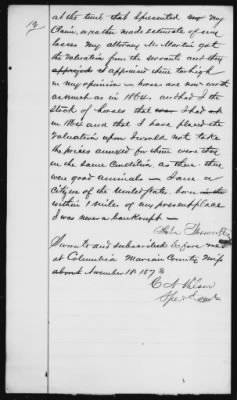 12
at the time that I presented my
Claim, or rather made estimate of my
losses my attorney Mr Martin got
the valuation from the servants and they
appraised them too high
in my opinion — horses are now worth
as much as in 1864. and had I the
stock of horses that I had
in 1864 and that I have placed the
valuation upon I would not take
the prices annexed for them were they
in the same Condition as then. they
were good animals — I am a
Citizen of the United States. born
within 1 miles of my present place
I was never a bankrupt —
John
Sworn to and subscribed before me
at Columbia Marion County Miss
November 18 187